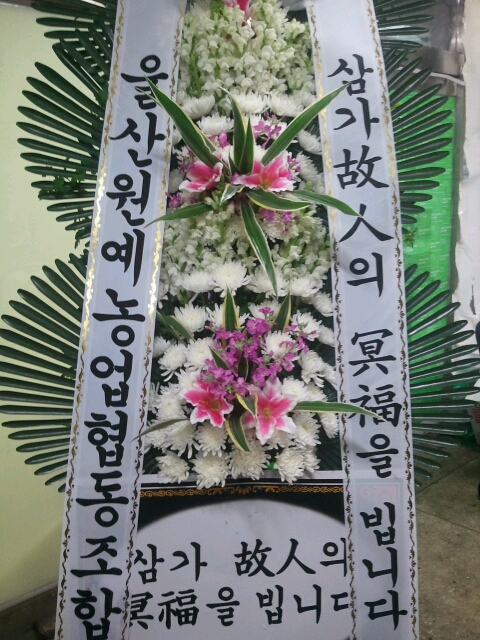 삼가 故人의 冥福을 빕니다
울산원예농업협동조합
삼가 故人의
冥福을 빕니다